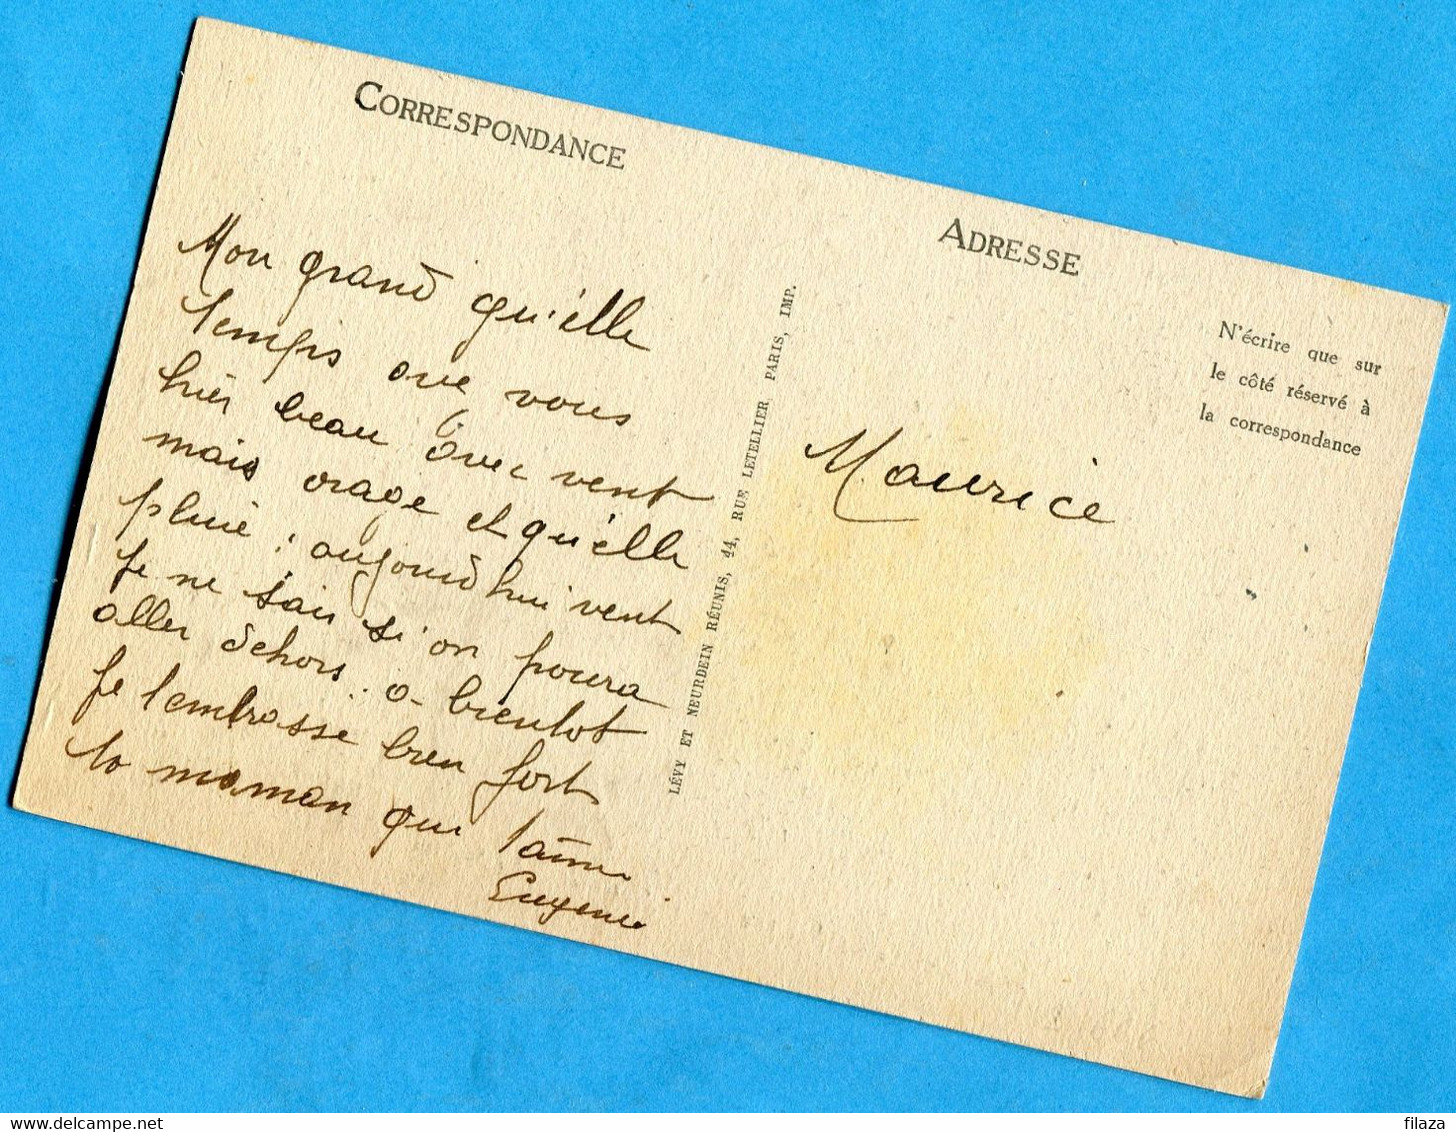 CORRESPONDANCE
Mon grand qu'elle
temps ove vous
hier beau ovec vent
mais orage et qu'elle
pluie : aujourd hui vent
Je ne sais si on poura
aller dehors .. a bientot
Je t'embrasse bien fort
ta maman qui t'aime
Eugenie
LÉVY ET NEURDEIN RÉUNIS, 44, RUE LETELLIER, PARIS, IMP.
ADRESSE
N'écrire que sur
le côté réservé à
la correspondance
Maurice
www.delcampe.net
filaza